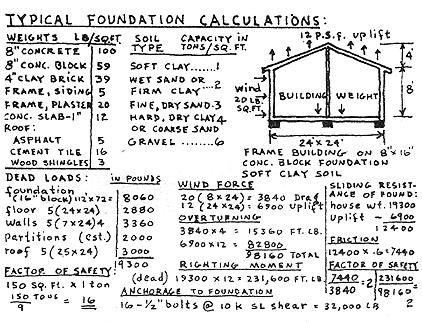 TYPICAL FOUNDATION CALCULATIONS:
WEIGHTS LB/SQ.FT.
8" CONCRETE 100
8" CONC. BLOCK 59
4" CLAY BRICK 39
FRAME, SIDING 5
FRAME, PLASTER 20
CONC. SLAB-1" 12
ROOF:
ASPHALT 5
CEMENT TILE 16
WOOD SHINGLES 3
SOIL TYPE CAPACITY IN TONS/SQ.FT.
SOFT CLAY.......1
WET SAND OR
FIRM CLAY....2
FINE, DRY SAND.3
HARD, DRY CLAY 4
OR COARSE SAND
GRAVEL ...... 6
12 P.S.F. uplift
4'
8'
wind
20 LB.
SQ.FT.
BUILDING WEIGHT
24'x24'
FRAME BUILDING ON 8"x16"
CONC. BLOCK FOUNDATION
SOFT CLAY SOIL
DEAD LOADS: IN POUNDS
foundation
(16" block) 112'x72= 8060
floor 5(24x24) 2880
walls 5(7x24)4 3360
partitions (est.) 2000
roof 5(25x24) 3000
19300
FACTOR OF SAFETY:
150 SQ.FT. x 1 ton
150 TONS = 16
9
WIND FORCE
20(8x24)=3840 Drag
12(24x24)=6900 uplift
OVERTURNING
3840x4 = 15360 FT.LB.
6900x12 = 82800
98160 TOTAL
RIGHTING MOMENT
(dead) 19300x12=231,600 FT.LB.
ANCHORAGE TO FOUNDATION
16-1/2" bolts @ 10 K SL shear = 32,000 LB
SLIDING RESIST-
ANCE OF FOUND:
house wt. 19300
uplift - 6900
12400
FRICTION
12400x.6=7440
FACTOR OF SAFETY
7440 = 2
3840
231600 =
98160
2